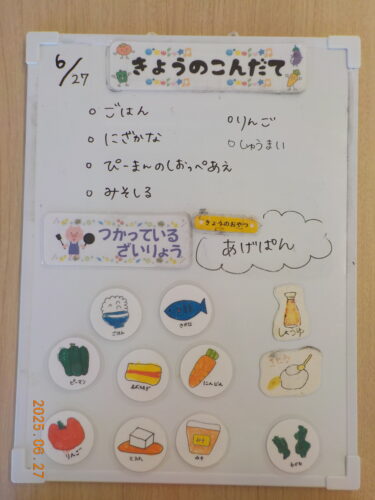 きょうのこんだて
6/27
○ごはん
○りんご
○にざかな
○しゅうまい
○ぴーまんのしおっぺあえ
○みそしる
つかっている
ざいりょう
きょうのおやつ
あげぱん
ごはん
さかな
しょうゆ
ピーマン
にんじん
りんご
とうふ
みそ
わかめ
2025.06.27